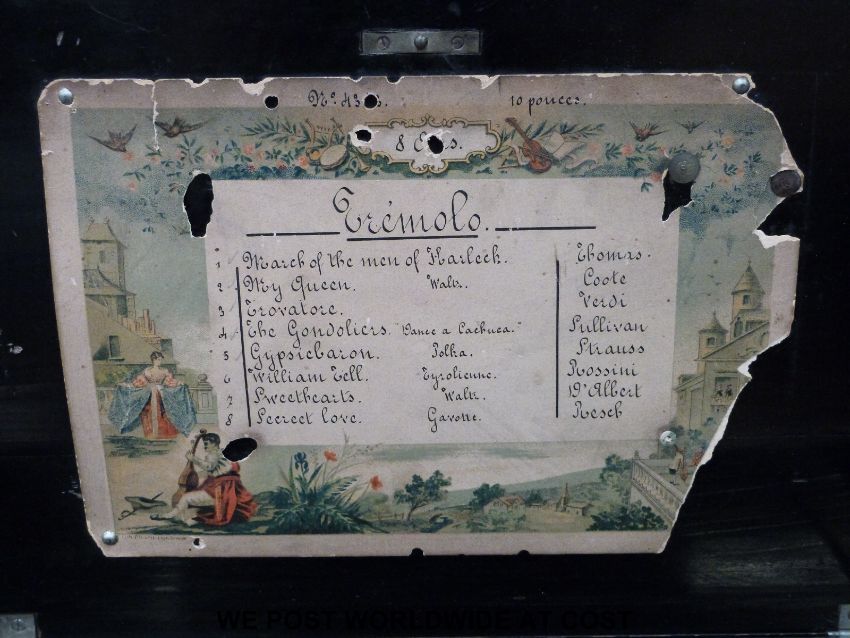 10 pouces.
8
Trémolo.
1 March of the men of Harlech. Thomas.
2 My Queen. Waltz. Coote
3 Trovatore. Verdi
4 The Gondoliers. "Dance a Cachuca." Sullivan
5 Gypsiebaron. Polka. Strauss
6 William Tell. Tyrolienne. Rossini
7 Sweethearts. Waltz. D'Albert
8 Secreet love. Gavotte. Resch
WE POST WORLDWIDE AT COST